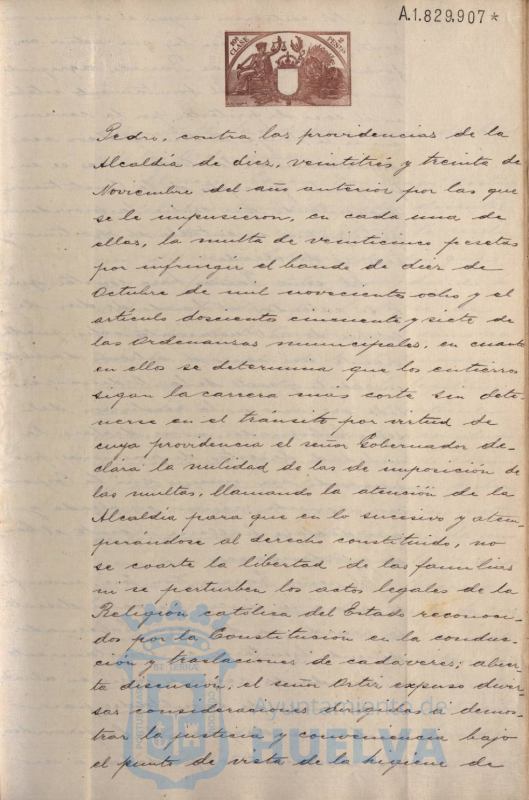 A.1.829.907*
CLASE
PESETAS
Pedro, contra las providencias de la
Alcaldía de diez, veintitrés y treinta de
Noviembre del año anterior por las que
se le impusieron, en cada una de
ellas, la multa de veinticinco pesetas
por infringir el bando de diez de
Octubre de mil novecientos ocho y el
artículo doscientos cincuenta y siete de
las Ordenanzas municipales, en cuanto
en ellos se determina que los entierros
sigan la carrera mas corta sin dete-
nerse en el tránsito por virtud de
cuya providencia el señor Gobernador de-
clara la nulidad de las de imposición de
las multas, llamando la atención de la
Alcaldía para que en lo sucesivo y atem-
perándose al derecho constituido, no
se coarte la libertad de las familias
ni se perturben los actos legales de la
Religión católica del Estado reconoci-
dos por la Constitución en la conduc-
ción y traslaciones de cadáveres; abier-
ta discusión, el señor Ortiz expuso diver-
sas consideraciones dirigidas a demos-
trar la justicia y conveniencia bajo
el punto de vista de la higiene de
Ayuntamiento de
HUELVA